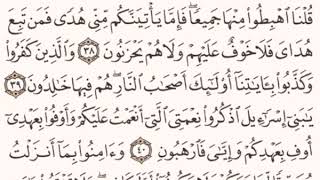 قُلْنَا ٱهْبِطُوا۟ مِنْهَا جَمِيعًا ۖ فَإِمَّا يَأْتِيَنَّكُم مِّنِّى هُدًى فَمَن تَبِعَ
هُدَاىَ فَلَا خَوْفٌ عَلَيْهِمْ وَلَا هُمْ يَحْزَنُونَ ٣٨ وَٱلَّذِينَ كَفَرُوا۟
وَكَذَّبُوا۟ بِـَٔايَـٰتِنَآ أُو۟لَـٰٓئِكَ أَصْحَـٰبُ ٱلنَّارِ ۖ هُمْ فِيهَا خَـٰلِدُونَ ٣٩
يَـٰبَنِىٓ إِسْرَٰٓءِيلَ ٱذْكُرُوا۟ نِعْمَتِىَ ٱلَّتِىٓ أَنْعَمْتُ عَلَيْكُمْ وَأَوْفُوا۟ بِعَهْدِىٓ
أُوفِ بِعَهْدِكُمْ وَإِيَّـٰىَ فَٱرْهَبُونِ ٤٠ وَءَامِنُوا۟ بِمَآ أَنزَلْتُ